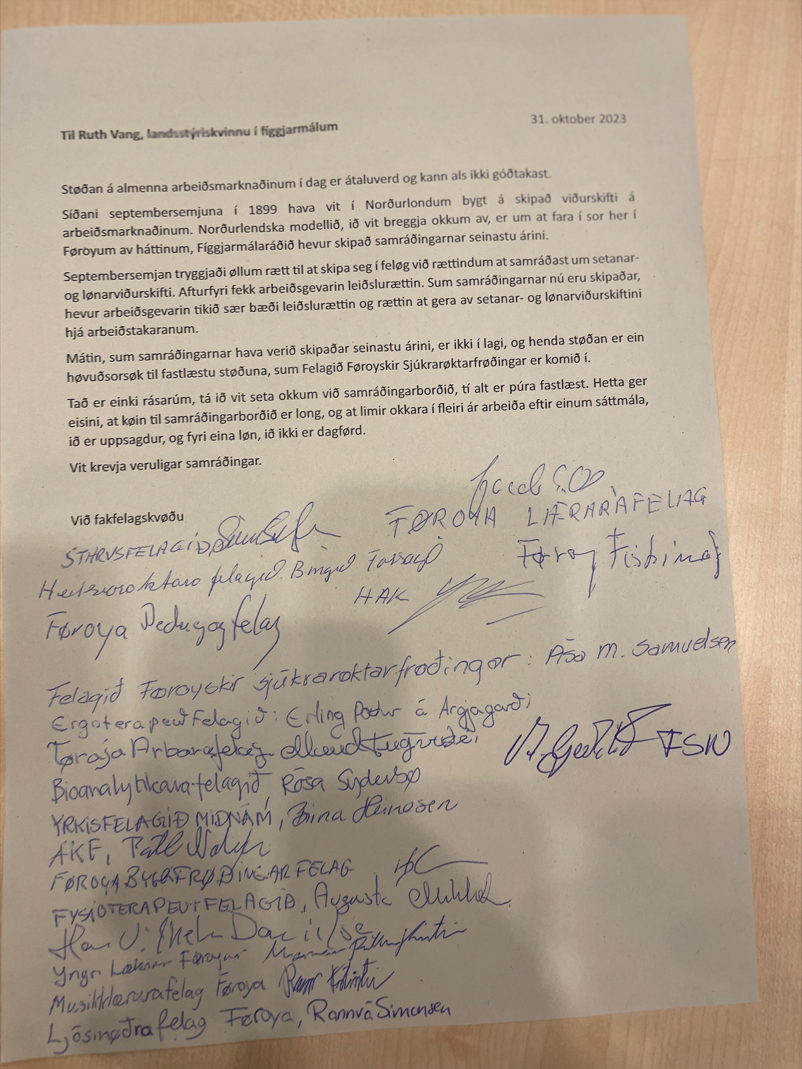 31. oktober 2023
Til Ruth Vang, landsstýriskvinnu í fíggjarmálum
Støðan á almenna arbeiðsmarknaðinum í dag er átaluverd og kann als ikki góðtakast.
Síðani septembersemjuna í 1899 hava vit í Norðurlondum bygt á skipað viðurskifti á
arbeiðsmarknaðinum. Norðurlendska modellið, ið vit breggja okkum av, er um at fara í sor her í
Føroyum av háttinum, Fíggjarmálaráðið hevur skipað samráðingarnar seinastu árini.
Septembersemjan tryggjaði øllum rætt til at skipa seg í feløg við rættindum at samráðast um setanar-
og lønarviðurskifti. Afturfyri fekk arbeiðsgevarin leiðslurættin. Sum samráðingarnar nú eru skipaðar,
hevur arbeiðsgevarin tikið sær bæði leiðslurættin og rættin at gera av setanar- og lønarviðurskiftini
hjá arbeiðstakaranum.
Mátin, sum samráðingarnar hava verið skipaðar seinastu árini, er ikki í lagi, og henda støðan er ein
høvuðsorsøk til fastlæstu støðuna, sum Felagið Føroyskir Sjúkrarøktarfrøðingar er komið í.
Tað er einki rásarúm, tá ið vit seta okkum við samráðingarborðið, tí alt er púra fastlæst. Hetta ger
eisini, at køin til samráðingarborðið er long, og at limir okkara í fleiri ár arbeiða eftir einum sáttmála,
ið er uppsagdur, og fyri eina løn, ið ikki er dagførd.
Vit krevja veruligar samráðingar.
Við fakfelagskvøðu
FØROYA LÆRARAFELAG
STARVSFELAGIÐ
Føroya
felagið. Birgid
HAK
Føroya Pedagogfelag
Felagið Føroyskir sjúkrarøktarfrøðingar: Ása M. Samuelsen
ErgoterapeutFelagið: Erling Poður á Argjagarði
Føroja Arbarafelag
FSN
Bioanalytikarafelagið, Rósa
YRKISFELAGIÐ MIÐNÁM,
AKF,
FØROYA BYGGIFRØÐINGARFELAG
FYSIOTERAPEUTFELAGIÐ, Augusta
Yngri Læknar Føroyar
Musikklærarafelag Føroya
Ljósmøðrafelag Føroya, Rannvá Simonsen